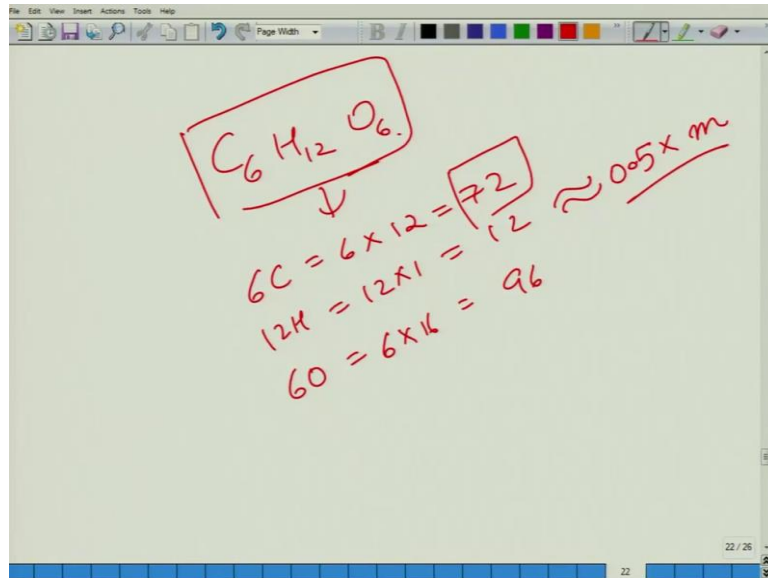 File Edit View Insert Actions Tools Help
Page Width
B I
C6 H12 O6.
6C = 6 × 12 = 72 ≈ 0.5 × m
12H = 12 × 1 = 12
6O = 6 × 16 = 96
22 / 26
22